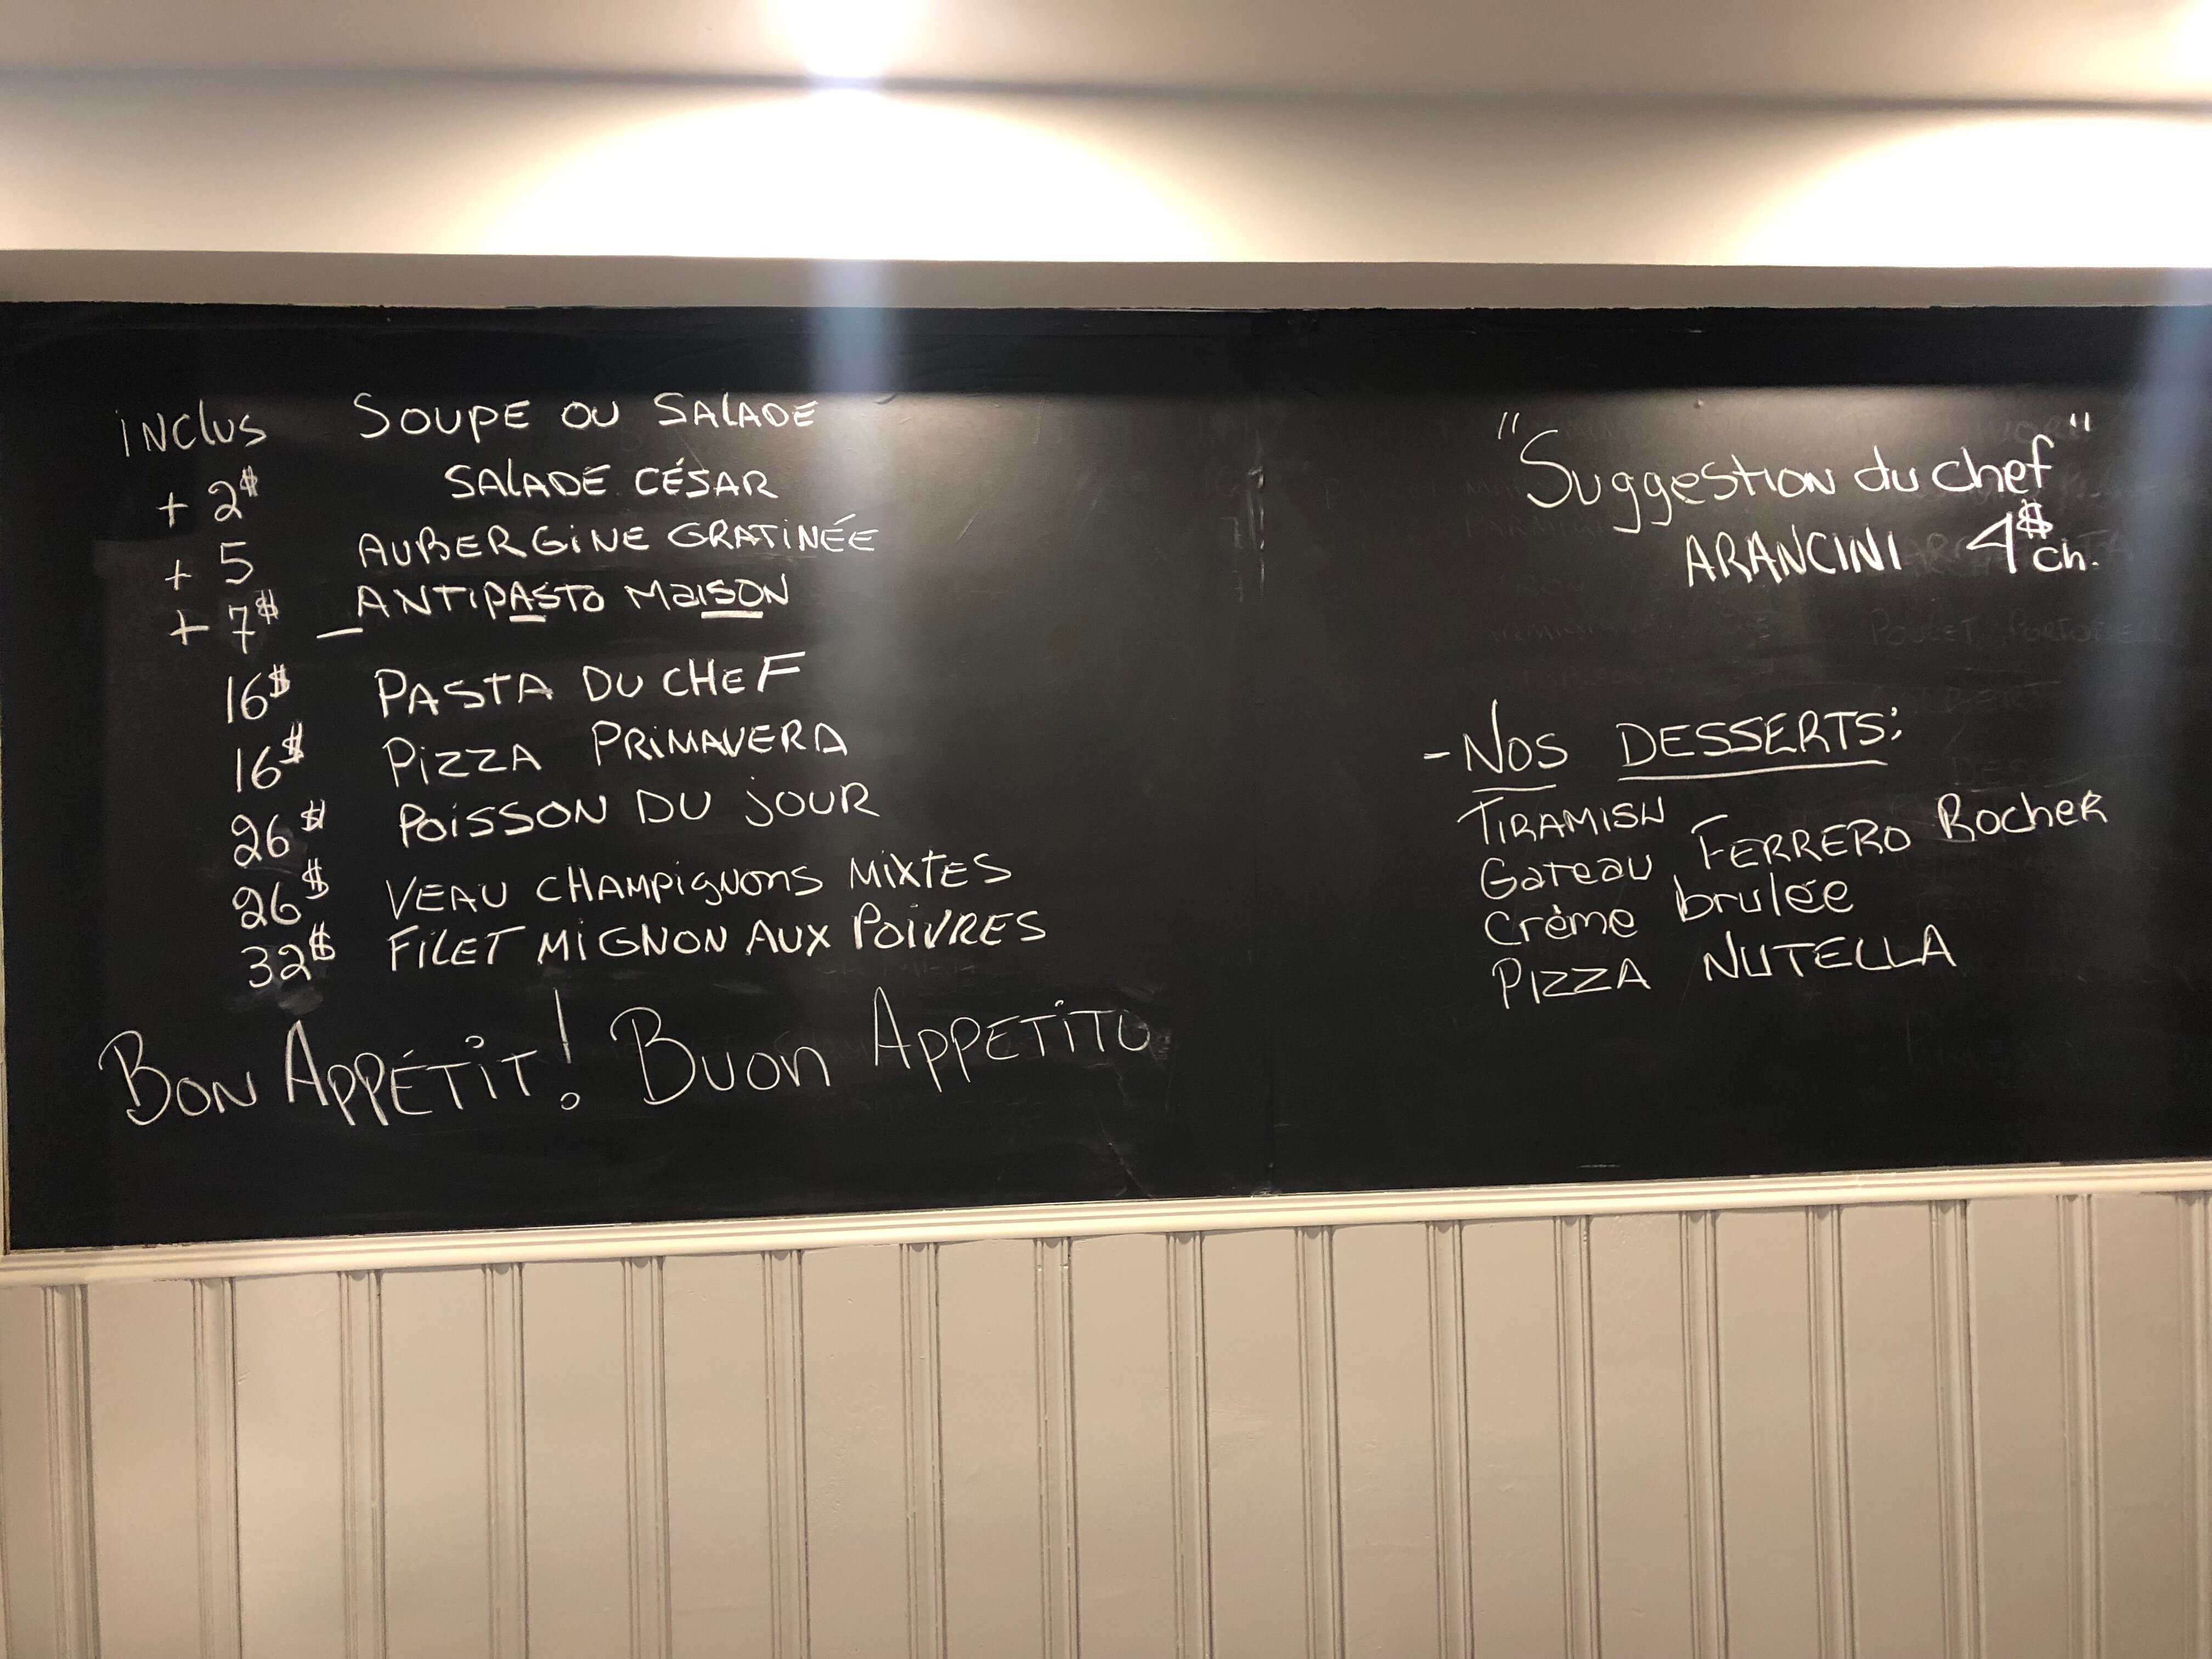 INCLUS SOUPE OU SALADE
+ 2$ SALADE CÉSAR
+ 5 AUBERGINE GRATINÉE
+ 7$ ANTIPASTO MAISON
16$ PASTA DU CHEF
16$ PIZZA PRIMAVERA
26$ POISSON DU JOUR
26$ VEAU CHAMPIGNONS MIXTES
32$ FILET MIGNON AUX POIVRES
BON APPÉTIT! BUON APPETITO
"Suggestion du chef"
ARANCINI 4$ ch.
- NOS DESSERTS:
TIRAMISU
Gateau FERRERO Rocher
Crème brulée
PIZZA NUTELLA